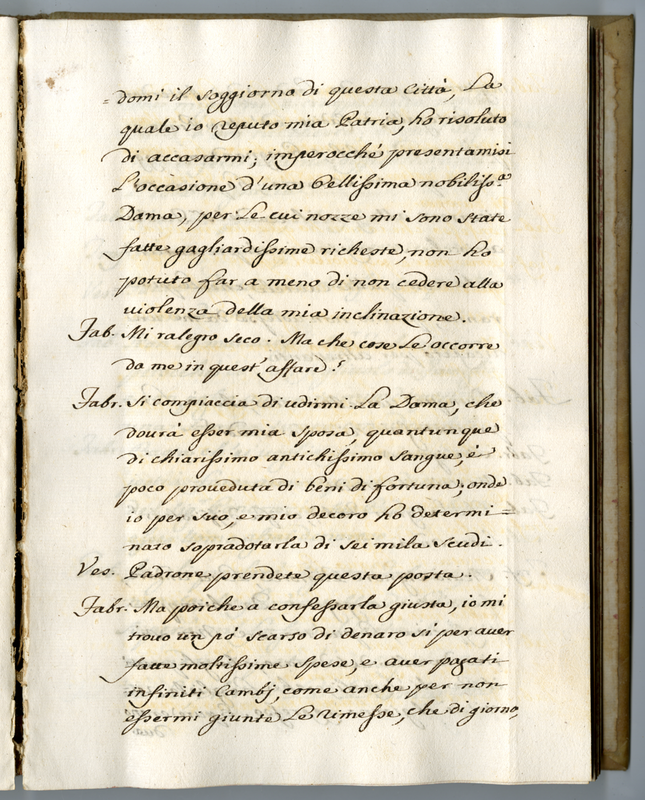 =domi il soggiorno di questa Città, La
quale io reputo mia Patria, ho risoluto
di accasarmi; imperocché presentamisi
L'occasione d'una bellissima nobiliss.ª
Dama, per Le cui nozze mi sono state
fatte gagliardissime richeste, non ho
potuto far a meno di non cedere alla
violenza della mia inclinazione.
Fab. Mi ralegro seco. Ma che cose Le occorre
da me in quest'affare?
Fabr. Si compiaccia di udirmi. La Dama, che
dourà esser mia sposa, quantunque
di chiarissimo antichissimo sangue, é
poco proueduta di beni di fortuna, onde
io per suo, e mio decoro ho determi=
nato sopradotarla di sei mila scudi.
Ves. Padrone prendete questa posta.
Fabr. Ma poiche a confessarla giusta, io mi
trouo un pó scarso di denaro si per auer
fatte moltissime spese, e auer pagati
infiniti Cambj, come anche per non
essermi giunte Le rimesse, che di giorno,